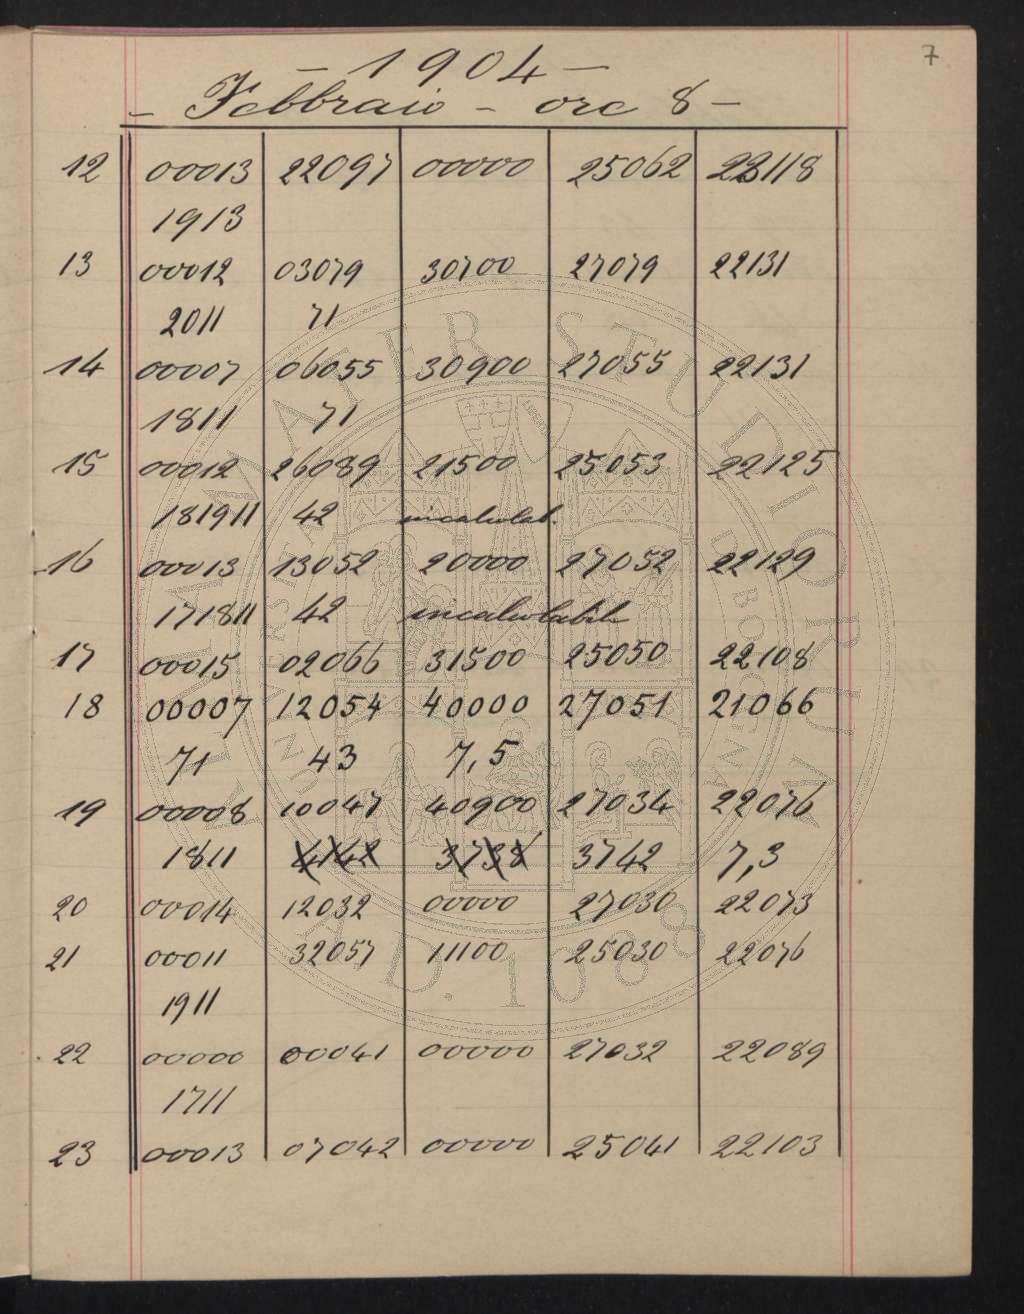 7
- 1904 -
- Febbraio - ore 8 -
12 00013 22097 00000 25062 22118
1913
13 00012 03079 30700 27079 22131
2011 71
14 00007 06055 30900 27055 22131
1811 71
15 00012 26089 21500 25053 22125
181911 42 incalcolab.
16 00013 13052 20000 27052 22129
171811 42 incalcolabile
17 00015 02066 31500 25050 22108
18 00007 12054 40000 27051 21066
71 43 7,5
19 00008 10047 40900 27034 22076
1811 4142 3738 3742 7,3
20 00014 12032 00000 27030 22073
21 00011 32057 11100 25030 22076
1911
22 00000 00041 00000 27032 22089
1711
23 00013 07042 00000 25041 22103
ALMA MATER STUDIORUM
A.D. 1088